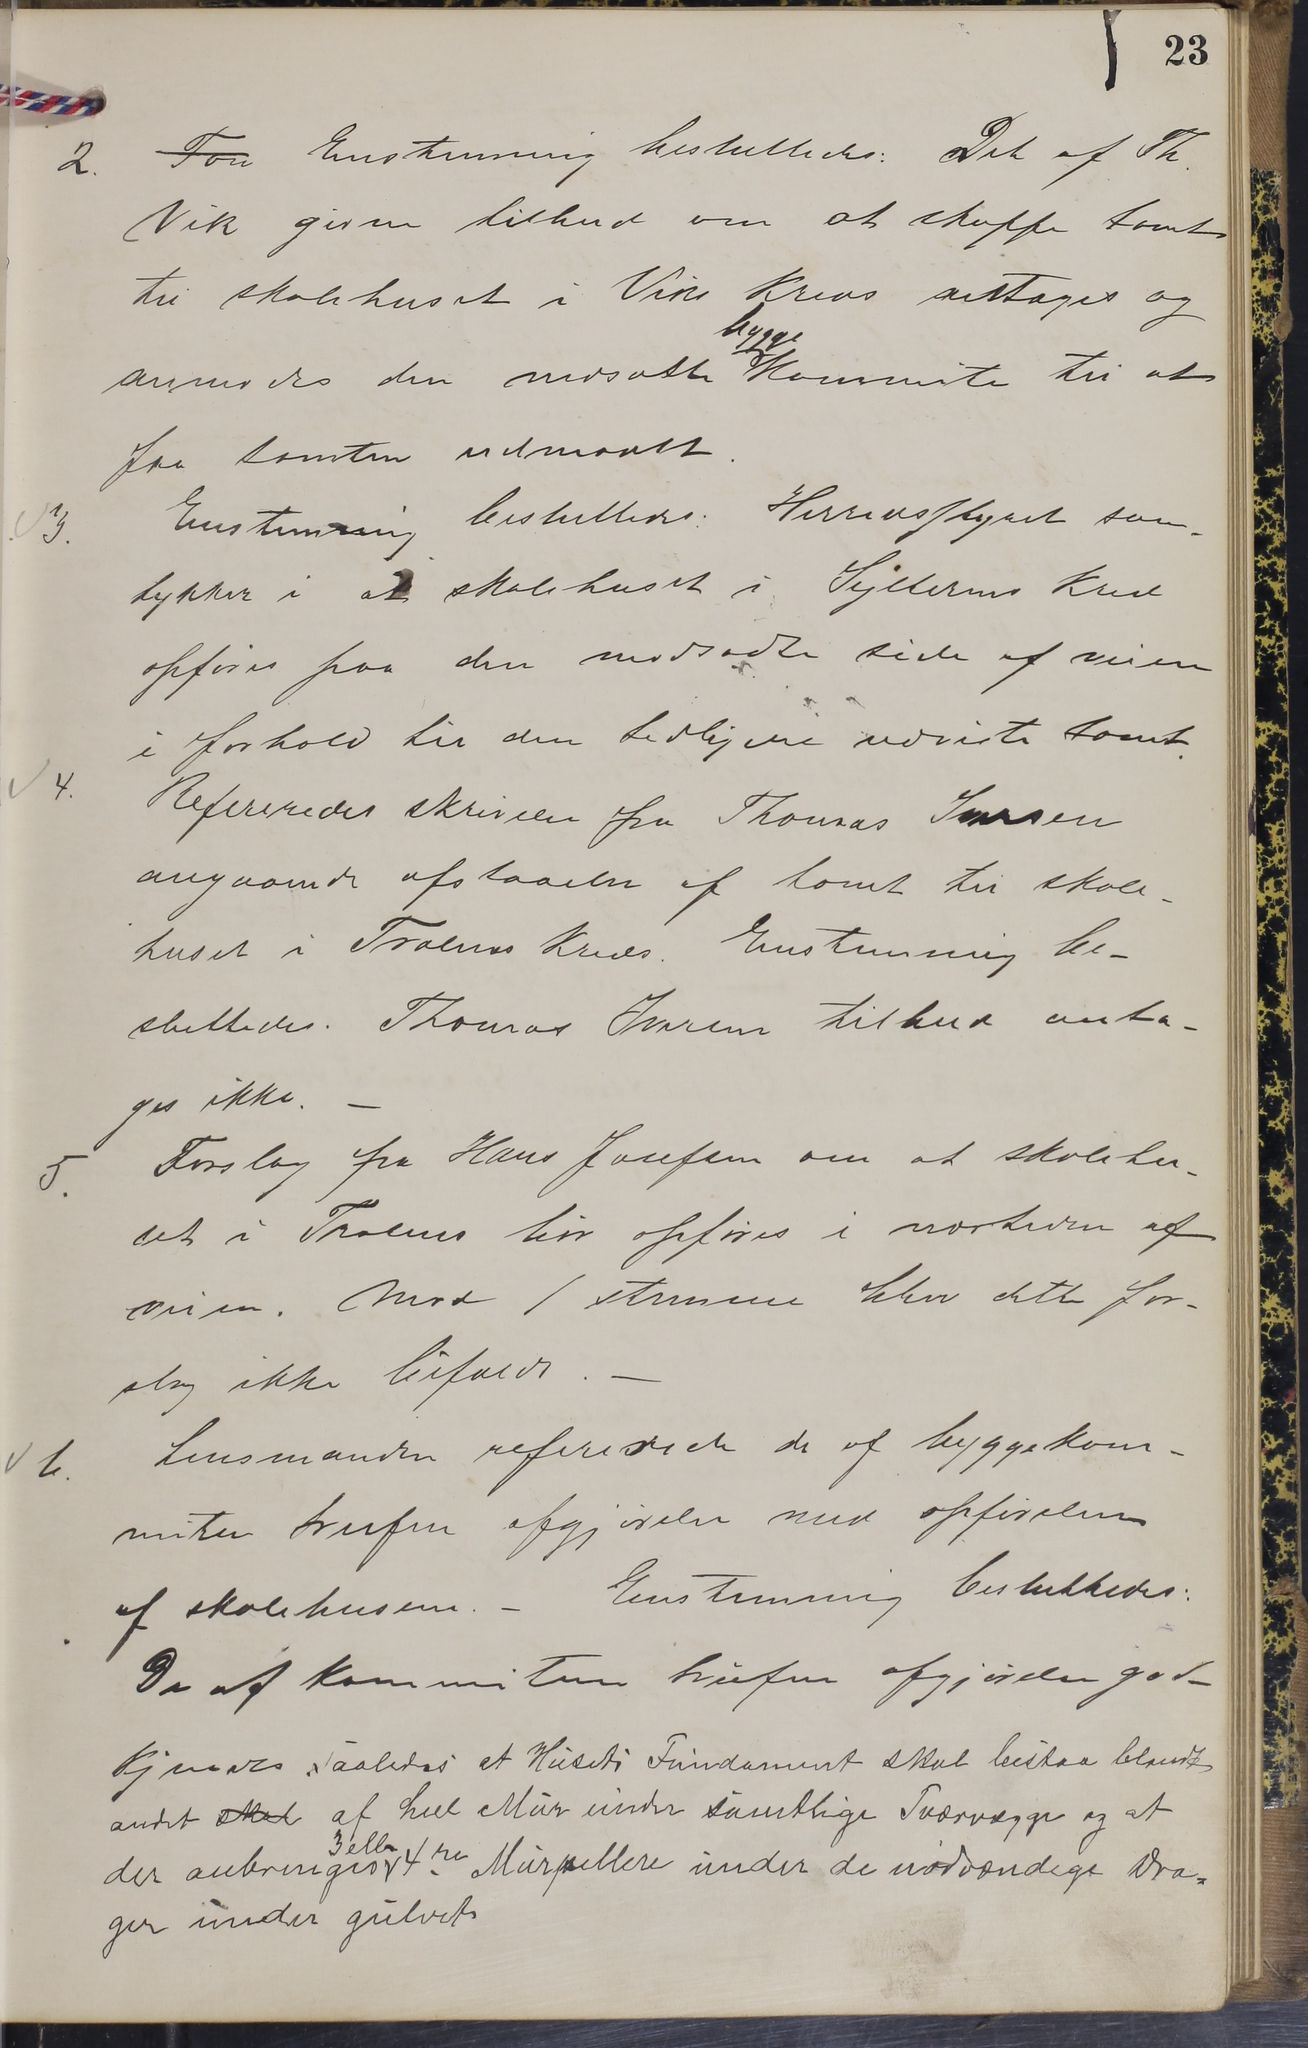 23
2. For Enstemmig besluttedes: Det af Th.
Vik givne tilbud om at skaffe tomt
til skolehuset i Viks Kreds antages og
bygge
anmodes den nedsatte Kommite til at
faa tomten udmaalt.
3. Enstemmig besluttedes: Herredsstyret sam-
tykker i at skolehuset i Kreds
opføres paa den modsadte side af veien
i forhold til den tidligere udviste tomt.
4. Refereredes skrivelse fra Thomas Ivarsen
angaaende afstaaelse af tomt til skole-
huset i Trælnes Kreds. Enstemmig be-
sluttedes. Thomas Ivarsens tilbud anta-
ges ikke. —
5. Forslag fra Hans Josefsen om at skolehu-
set i Trælnes bør opføres i nærheden af
veien. Mod 1 stemme blev dette for-
slag ikke bifaldt. —
6. Lensmanden refererede de af byggekom-
miteen trufne afgjørelser med opførelsen
af skolehusene. — Enstemmig besluttedes:
De af Kommiteen trufne afgjørelser god-
kjendes saaledes at Husets Fundament skal bestaa blandt
andet skal af hel Mur under samtlige Tværvægge og at
3 eller
der anbringes 4re Murpillere under de nødvændige Dra-
ger under gulvet